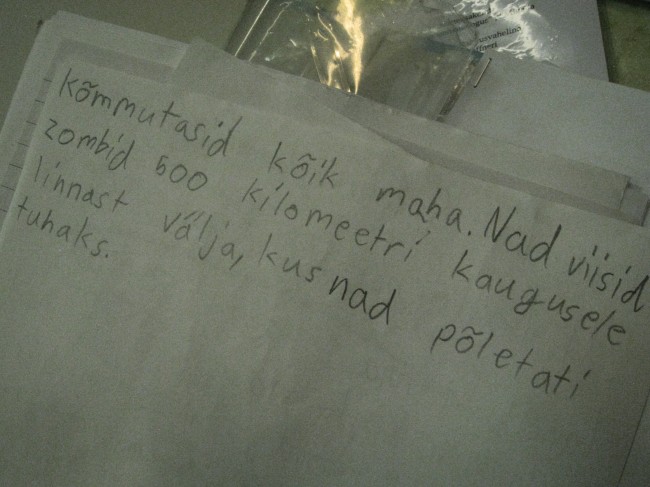 kõmmutasid kõik maha. Nad viisid
zombid 500 kilomeetri kaugusele
linnast välja, kus nad põletati
tuhaks.